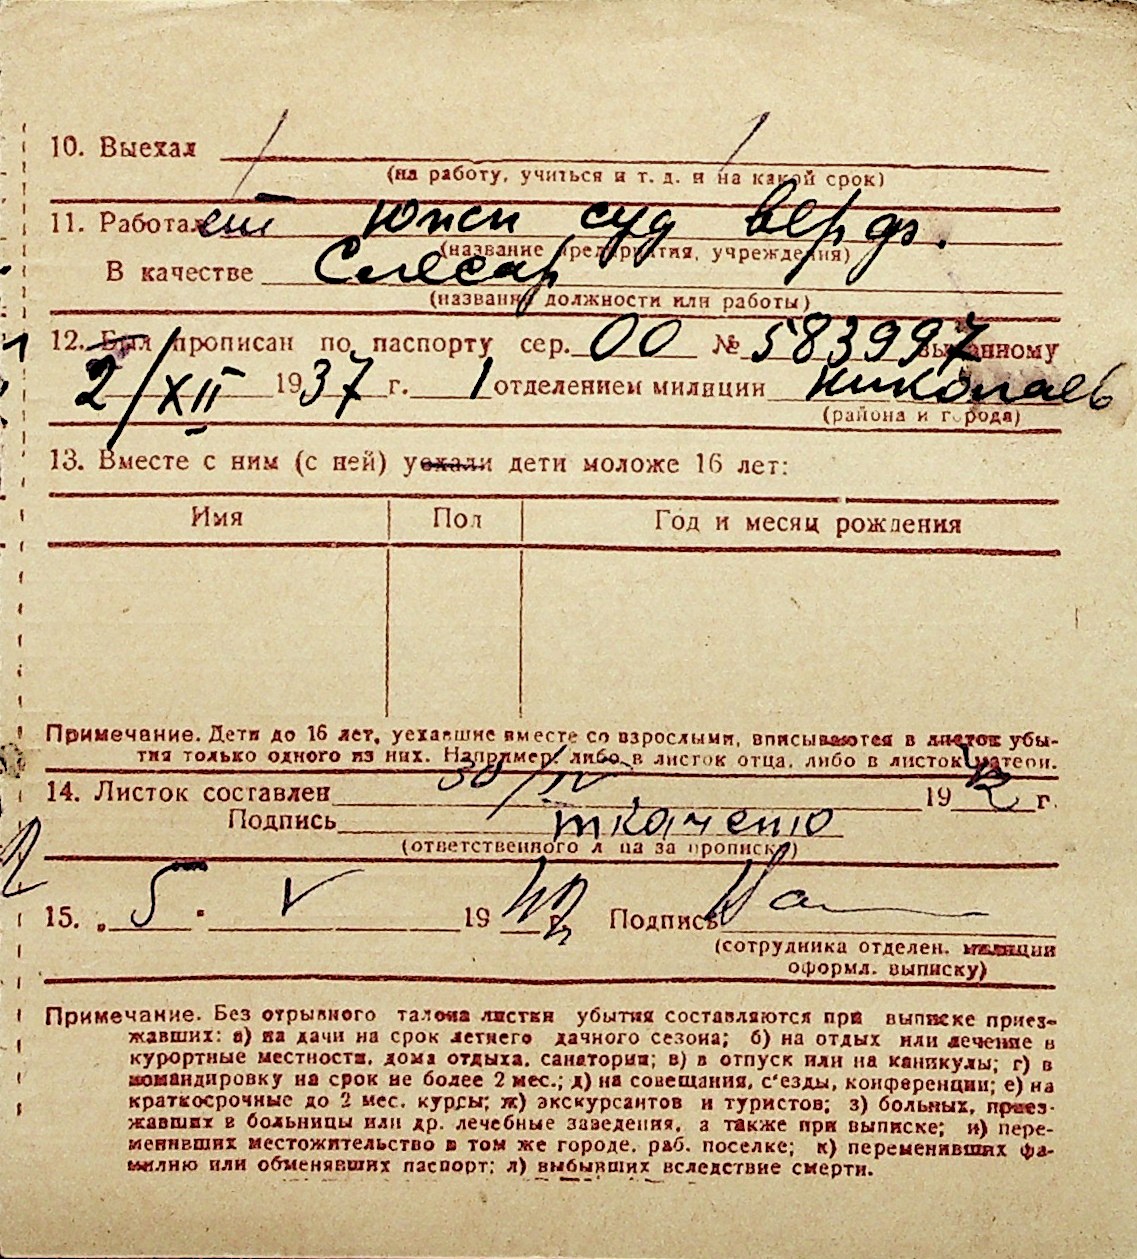 10. Выехал
(на работу, учиться и т. д. и на какой срок)
11. Работает Южн суд верф.
(название предприятия, учреждения)
В качестве Слесар
(название должности или работы)
12. Был прописан по паспорту сер. 00 № 583997 выданному
2/XII 1937 г. 1 отделением милиции Николаев
(района и города)
13. Вместе с ним (с ней) уехали дети моложе 16 лет:
Имя Пол Год и месяц рождения
Примечание. Дети до 16 лет, уехавшие вместе со взрослыми, вписываются в листок убы-
тия только одного из них. Например, либо в листок отца, либо в листок матери.
14. Листок составлен 30/IV 19 г.
Подпись Ткаченко
(ответственного лица за прописку)
15. „5" V 19 г. Подпись
(сотрудника отделен. милиции
оформл. выписку)
Примечание. Без отрывного талона листки убытия составляются при выписке приез-
жавших: а) на дачи на срок летнего дачного сезона; б) на отдых или лечение в
курортные местности, дома отдыха, санатории; в) в отпуск или на каникулы; г) в
командировку на срок не более 2 мес.; д) на совещания, с'езды, конференции; е) на
краткосрочные до 2 мес. курсы; ж) экскурсантов и туристов; з) больных, приез-
жавших в больницы или др. лечебные заведения, а также при выписке; и) пере-
менивших местожительство в том же городе, раб. поселке; к) переменивших фа-
милию или обменявших паспорт; л) выбывших вследствие смерти.